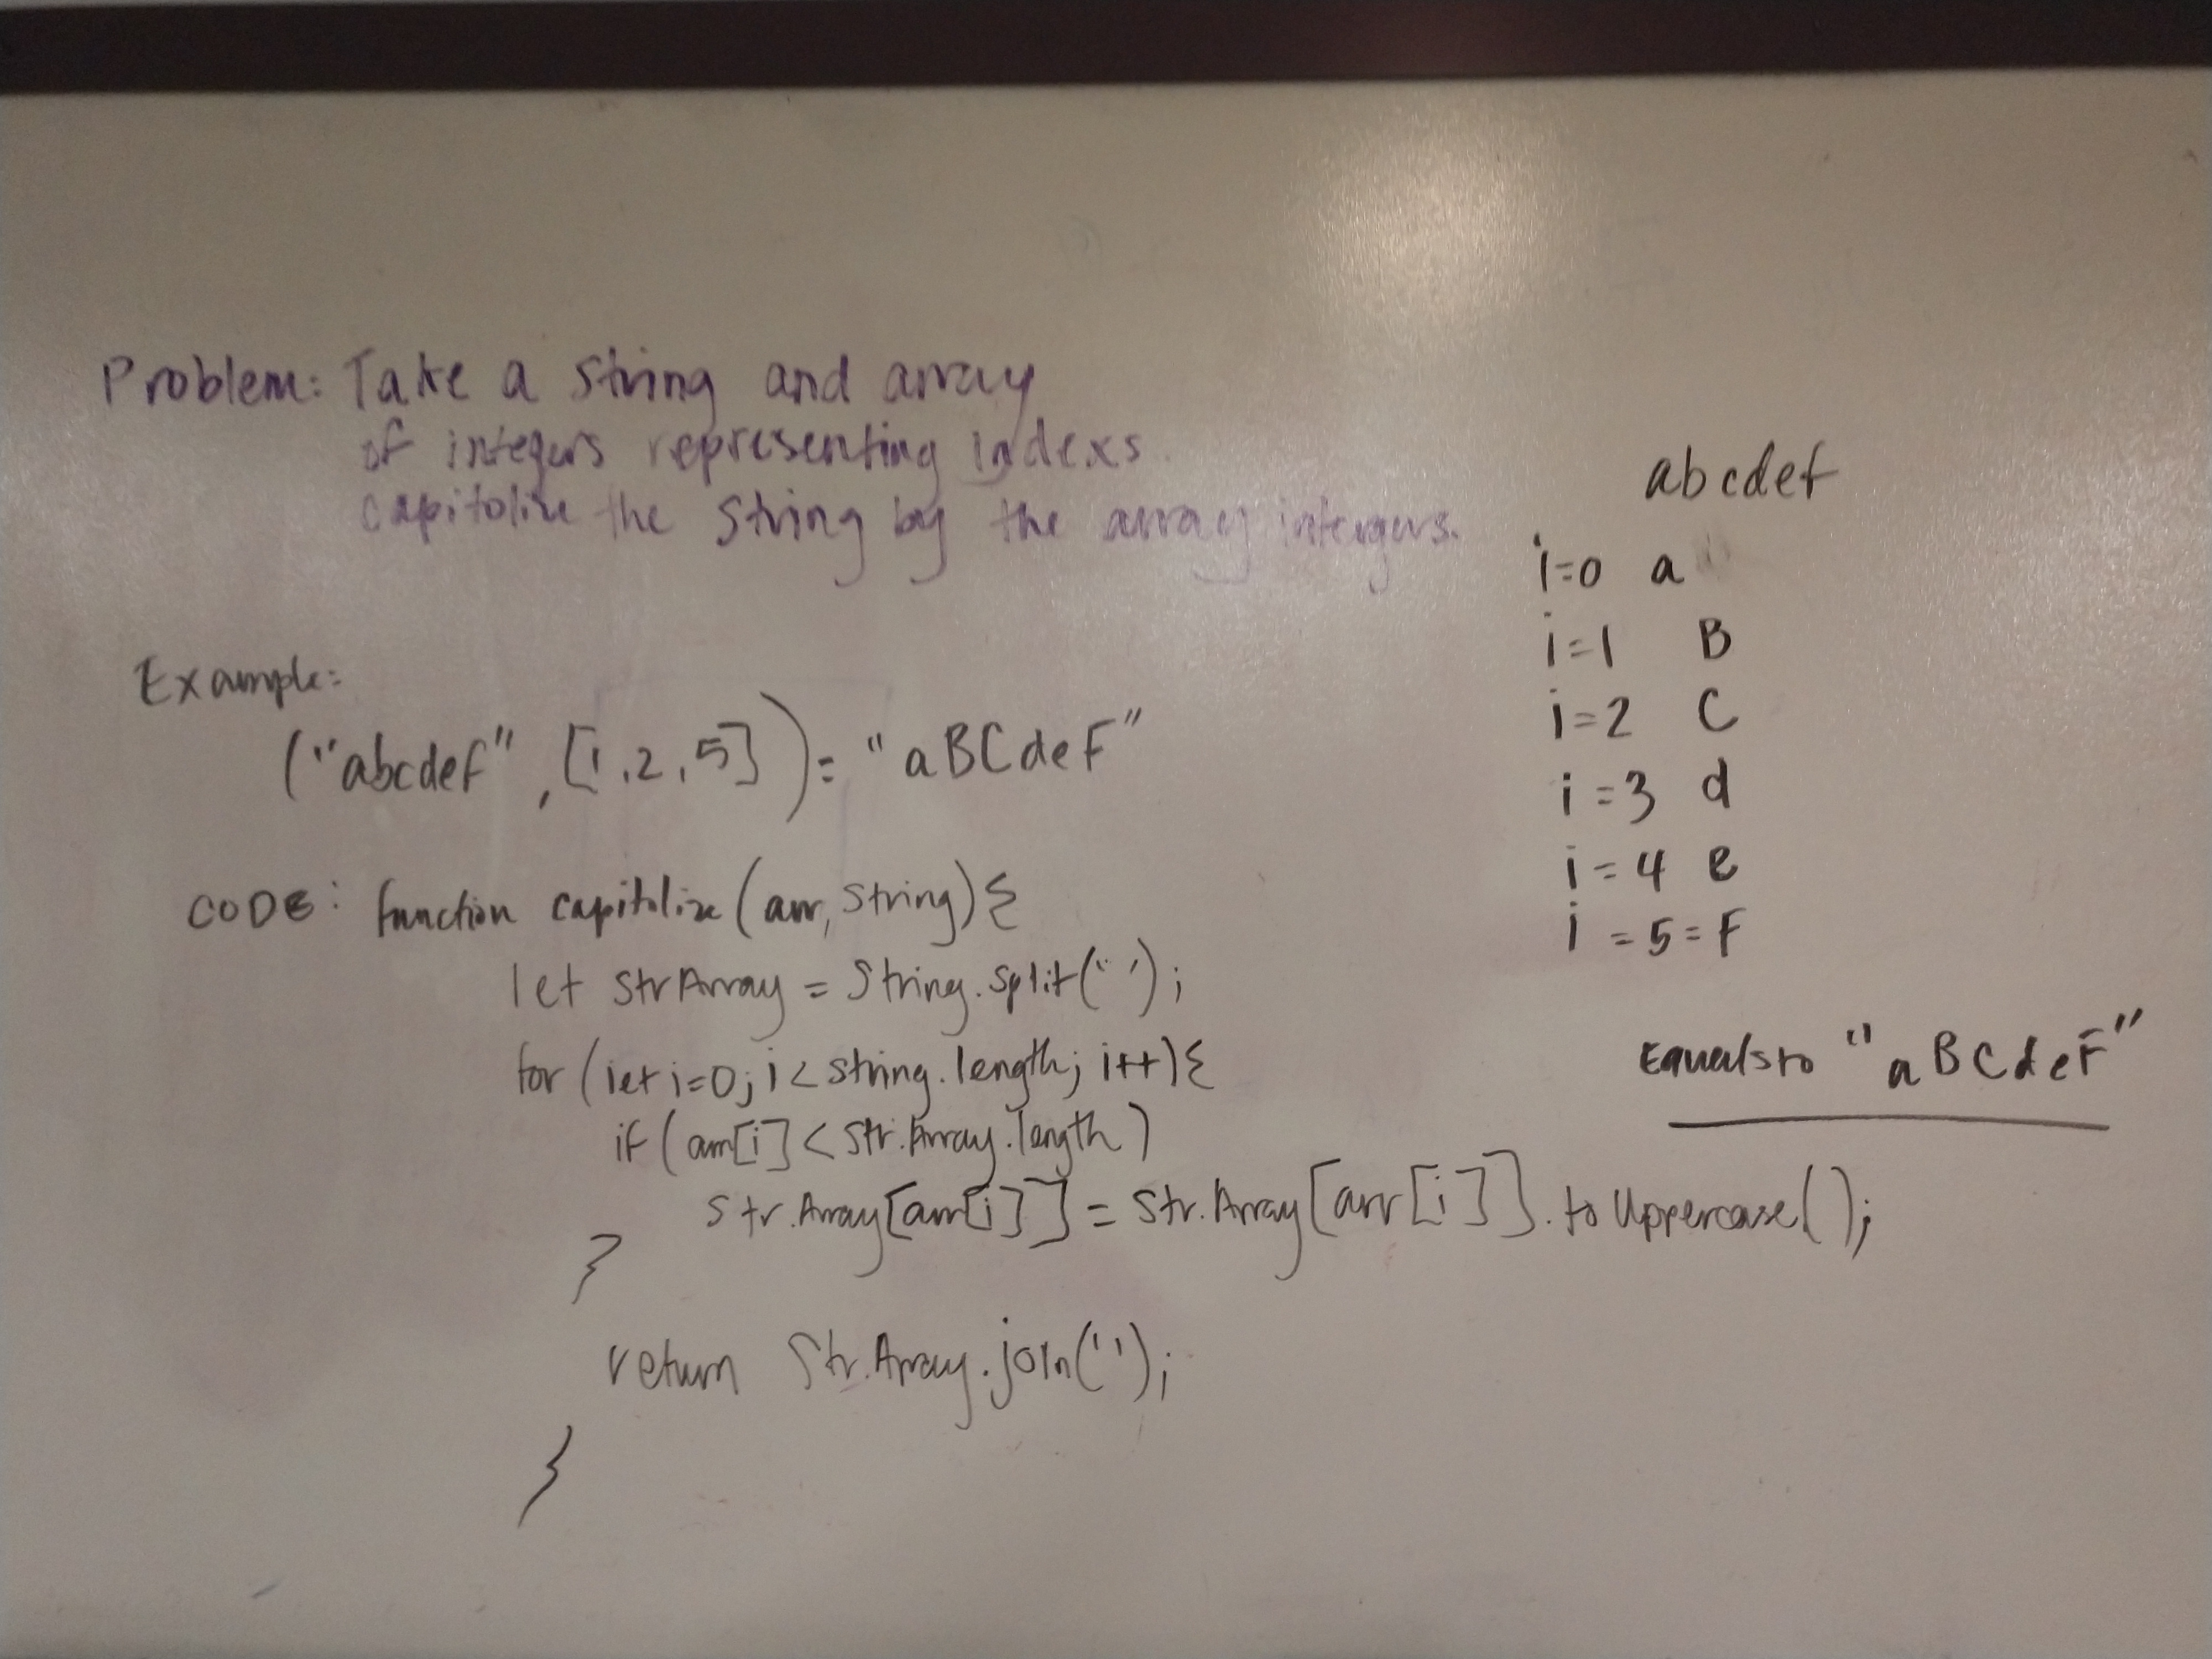 Problem: Take a string and array
of integers representing indexs
capitolize the string by the array intergers.
Example:
("abcdef", [1,2,5]) = "aBCdeF"
CODE: function capitolize(arr, string){
let strArray = string.split('');
for (let i=0; i < string.length; i++){
if (arr[i] < str.Array.length)
str.Array[arr[i]] = str.Array[arr[i]].toUppercase();
}
return Str.Array.join('');
}
abcdef
i=0 a
i=1 B
i=2 C
i=3 d
i=4 e
i=5=F
Equals to "aBCdeF"